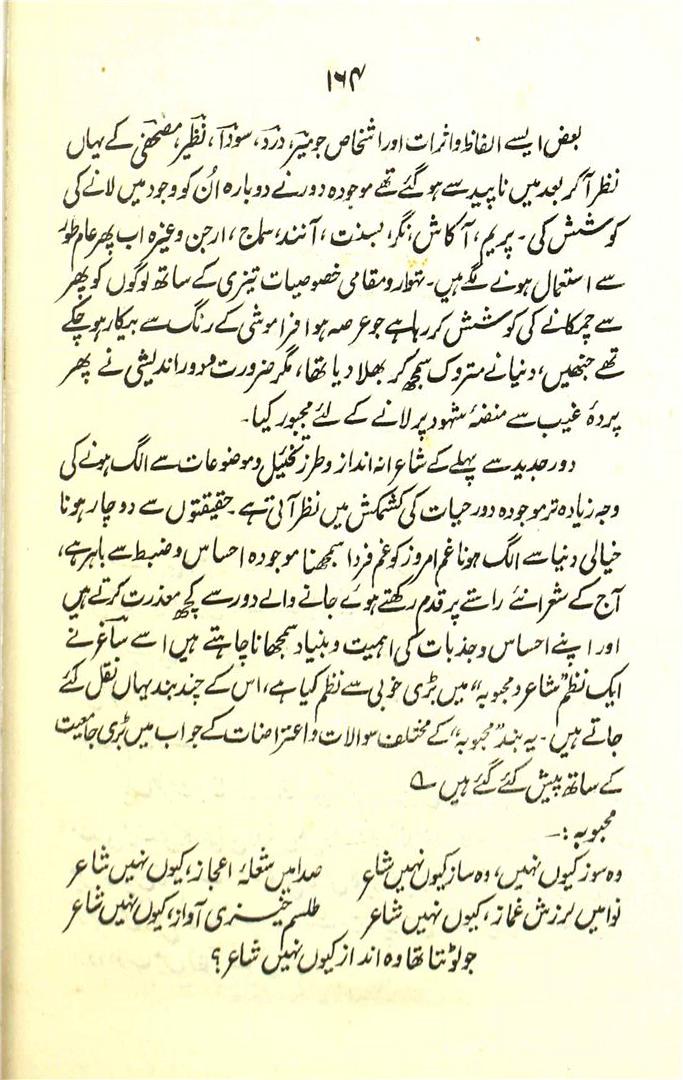 ۱۶۴
بعض ایسے الفاظ و اثرات اور اشخاص جو میرؔ، دردؔ، سوداؔ، نظیرؔ، مصحفیؔ کے یہاں
نظر آ کر بعد میں ناپید سے ہو گئے تھے موجودہ دور نے دوبارہ اُن کو وجود میں لانے کی
کوشش کی۔ پریم، آکاش، نگر، بسنت، آنند، سماج، ارجن وغیرہ اب پھر عام طور
سے استعمال ہونے لگے ہیں۔ تہوار و مقامی خصوصیات تیزی کے ساتھ لوگوں کو پھر
سے چمکانے کی کوشش کر رہا ہے جو عرصہ ہوا فراموشی کے رنگ سے بیکار ہو چکے
تھے جنھیں، دنیا نے متروک سمجھ کر بھلا دیا تھا، مگر ضرورت و دور اندیشی نے پھر
پردۂ غیب سے منصۂ شہود پر لانے کے لئے مجبور کیا۔
دور جدید سے پہلے کے شاعرانہ انداز و طرز تخئیل و موضوعات سے الگ ہونے کی
وجہ زیادہ تر موجودہ دور حیات کی کشمکش میں نظر آتی ہے۔ حقیقتوں سے دوچار ہونا
خیالی دنیا سے الگ ہونا غم امروز کو غم فردا سمجھنا موجودہ احساس و ضبط سے باہر ہے،
آج کے شعرا نئے راستے پر قدم رکھتے ہوئے جانے والے دور سے کچھ معذرت کرتے ہیں
اور اپنے احساس و جذبات کی اہمیت و بنیاد سمجھانا چاہتے ہیں اسے ساغرؔ نے
ایک نظم ”شاعر و محبوبہ“ میں بڑی خوبی سے نظم کیا ہے، اس کے چند بند یہاں نقل کئے
جاتے ہیں۔ یہ بند ”محبوبہ“ کے مختلف سوالات و اعتراضات کے جواب میں بڑی جامعیت
کے ساتھ پیش کئے گئے ہیں ؎
محبوبہ:۔
وہ سوز کیوں نہیں، وہ ساز کیوں نہیں شاعر صدا میں شعلۂ اعجاز، کیوں نہیں شاعر
نوا میں لرزش غماز، کیوں نہیں شاعر طلسم خیزی آواز، کیوں نہیں شاعر
جو لوٹتا تھا وہ انداز کیوں نہیں شاعر؟